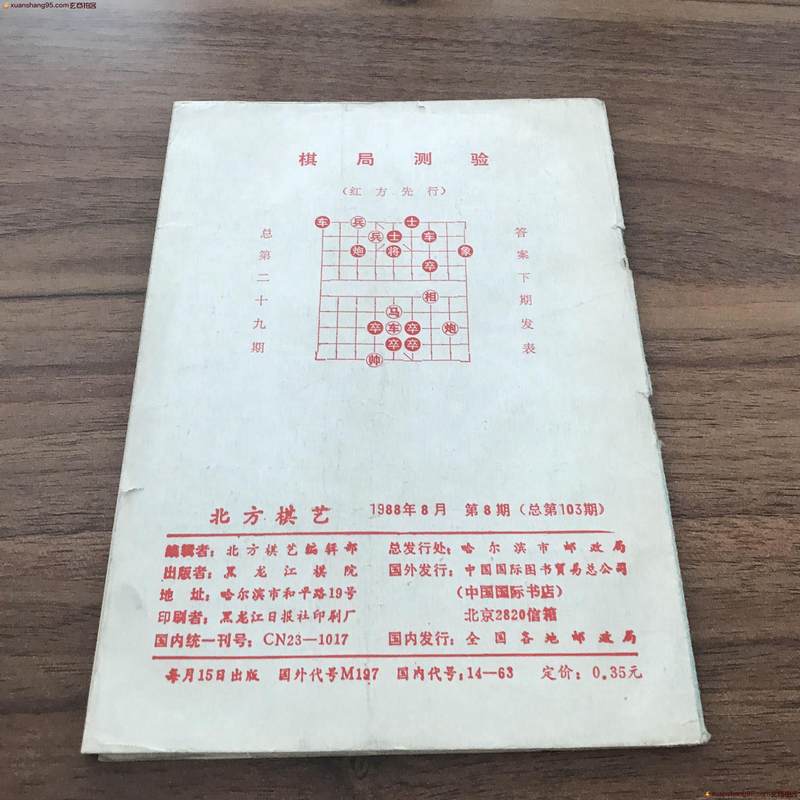 xuanshang95.com 玄尚拍区
棋局测验
(红方先行)
总第二十九期
答案下期发表
车 兵 士
兵 士 车
炮 将 象
卒
相
马
卒 车 卒 炮
卒 卒
帅
北方棋艺 1988年8月 第8期(总第103期)
编辑者:北方棋艺编辑部 总发行处:哈尔滨市邮政局
出版者:黑龙江棋院 国外发行:中国国际图书贸易总公司
地 址:哈尔滨市和平路19号 (中国国际书店)
印刷者:黑龙江日报社印刷厂 北京2820信箱
国内统一刊号:CN23—1017 国内发行:全国各地邮政局
每月15日出版 国外代号M197 国内代号:14—63 定价:0.35元
xuanshang95.com